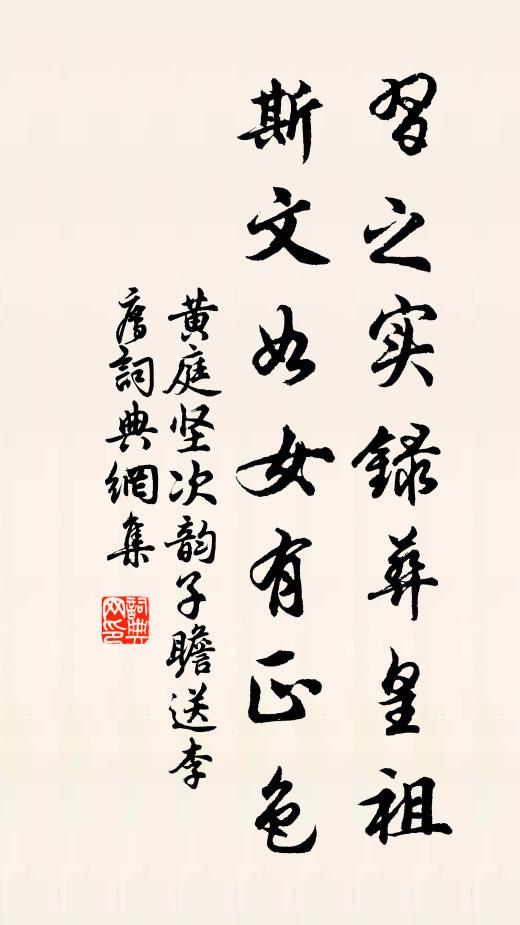 習之实録葬皇祖
斯文如女有正色
黄庭坚次韵子瞻送李
唐詞典網集
詞典网印